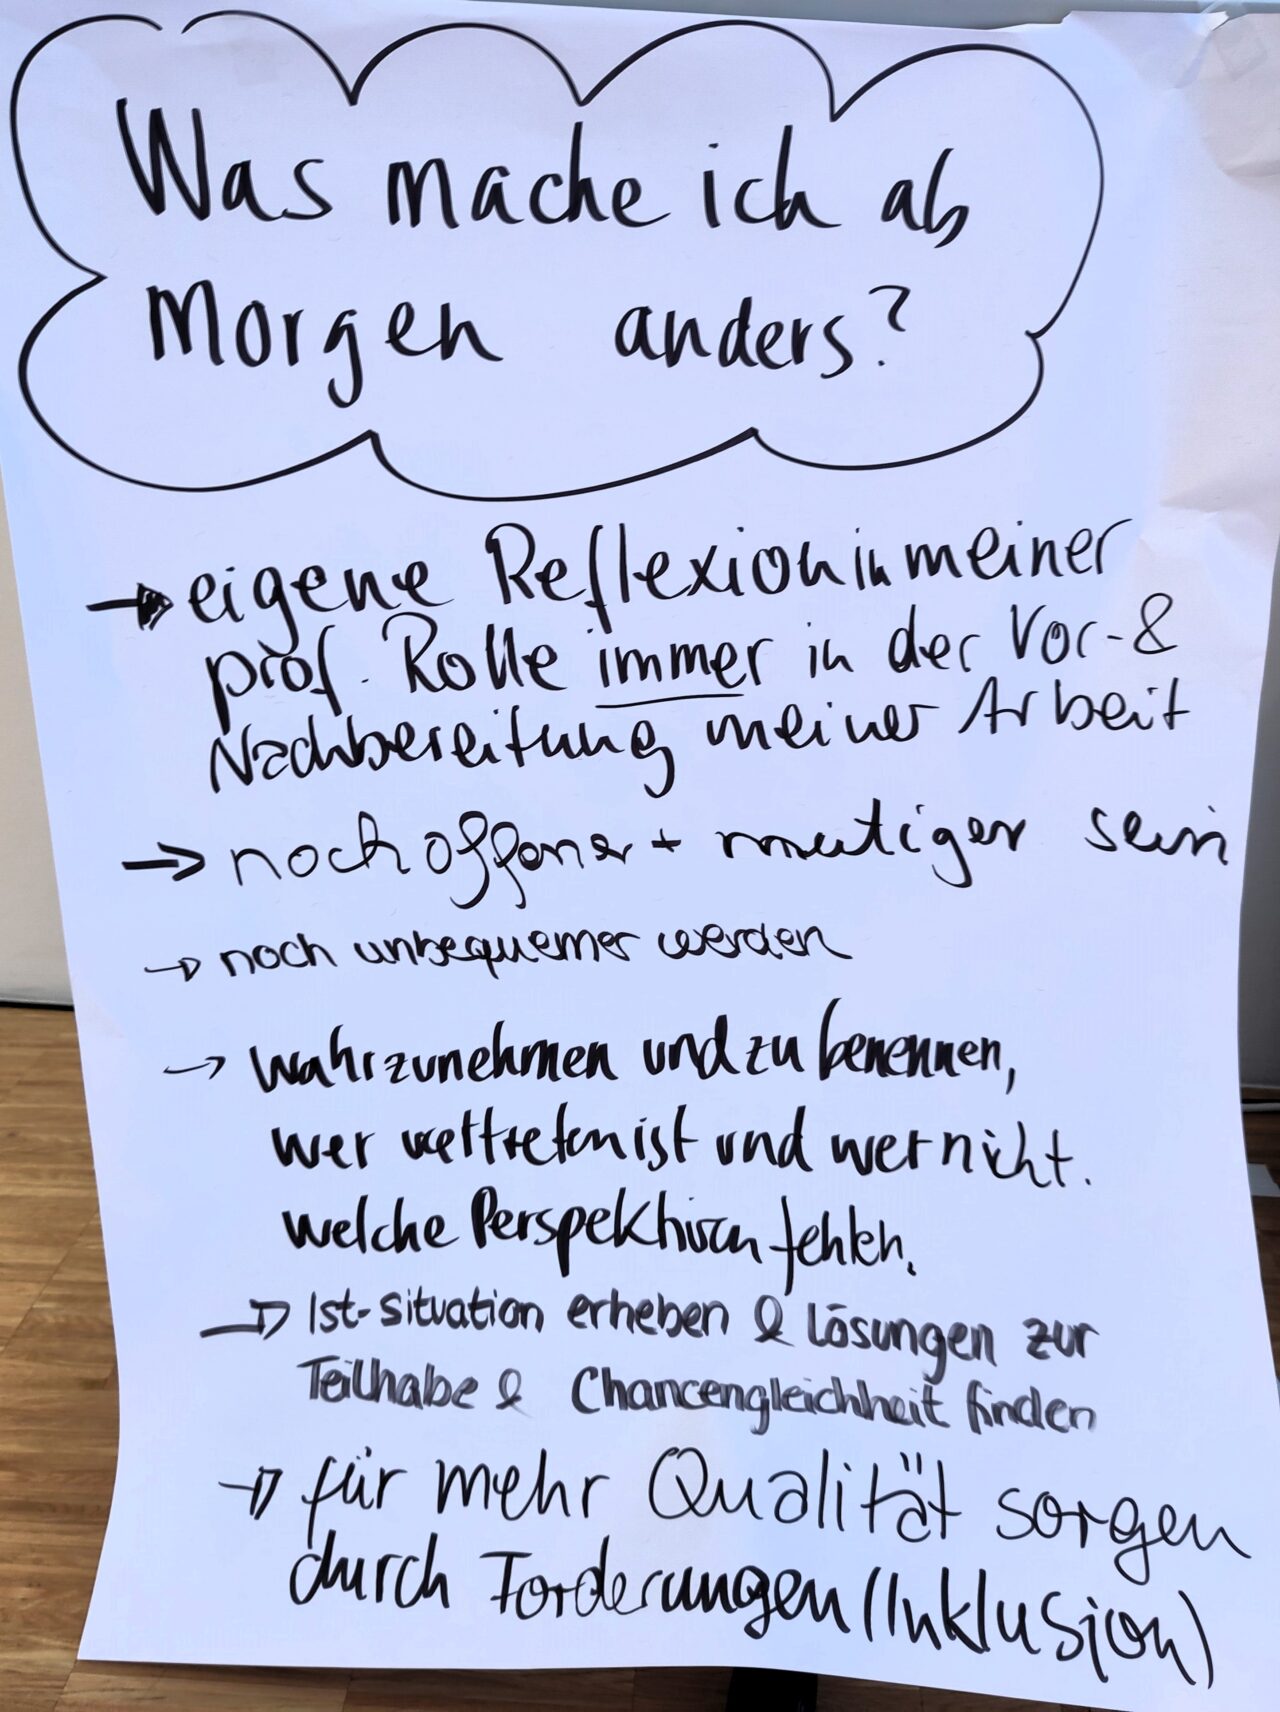 Was mache ich ab
Morgen anders?
→ eigene Reflexion in meiner
prof. Rolle immer in der Vor- &
Nachbereitung meiner Arbeit
→ noch offener + mutiger sein
→ noch unbequemer werden
→ wahrzunehmen und zu benennen,
wer vertreten ist und wer nicht.
welche Perspektiven fehlen.
→ Ist-Situation erheben & Lösungen zur
Teilhabe & Chancengleichheit finden
→ für mehr Qualität sorgen
durch Forderungen (Inklusion)